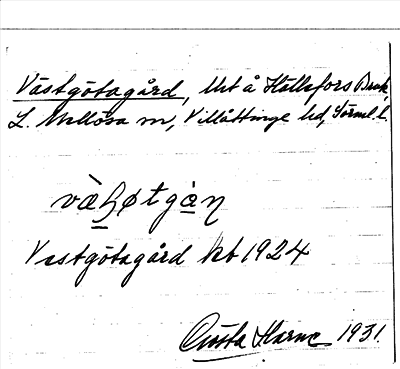 Västgötagård, lht å Hällefors Bruk,
L. Mellösa sn, Villåttinge hd, Sörml. l.
Vestgötagård kb 1924
Gösta Harne 1931.